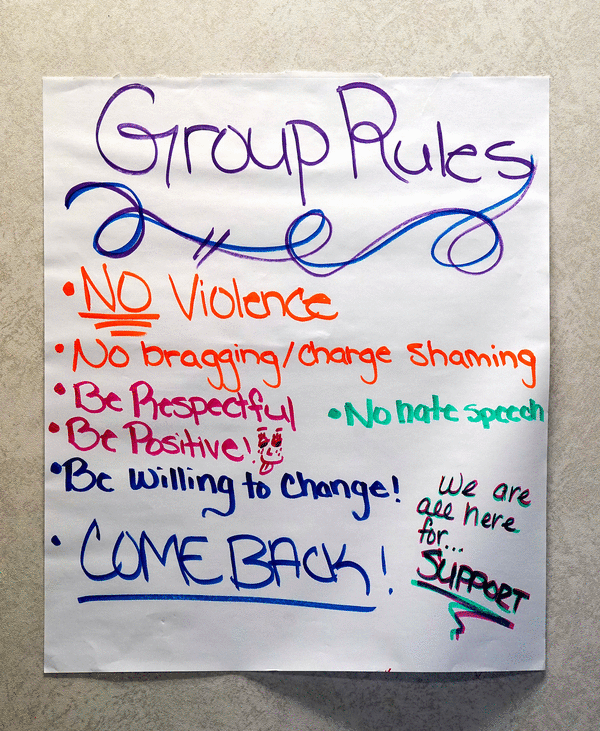 Group Rules
• NO Violence
• No bragging/charge shaming
• Be Respectful
• No hate speech
• Be Positive!
• Be willing to change!
We are
all here
for...
SUPPORT
• COME BACK!